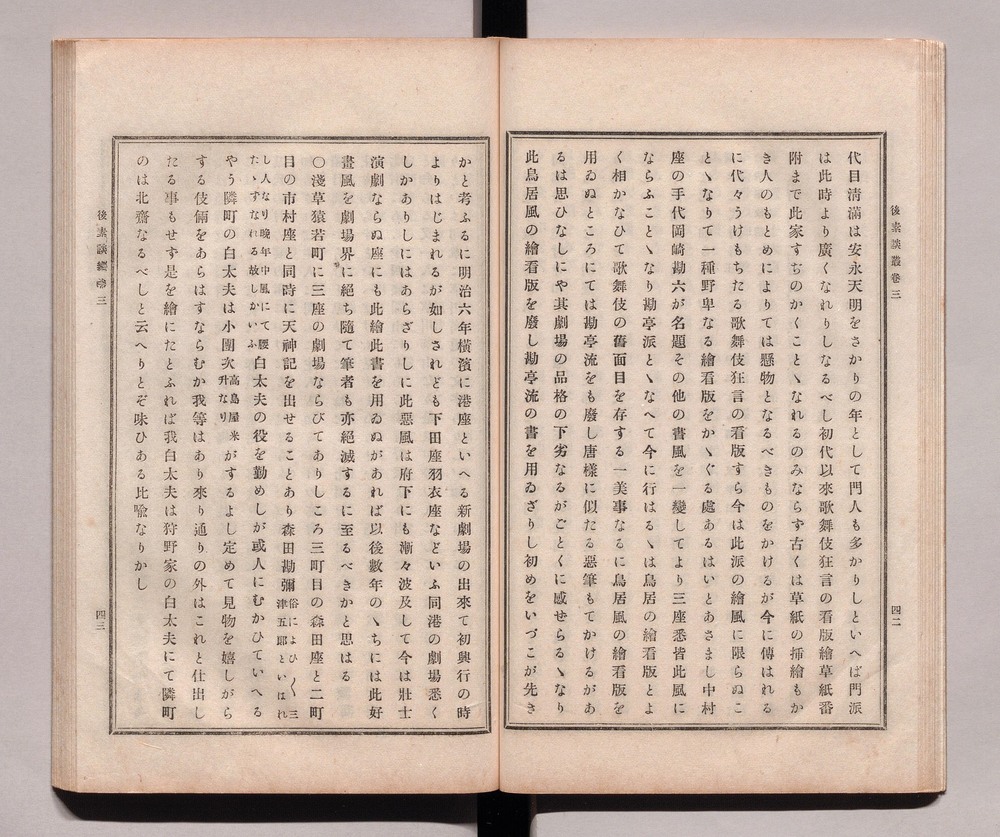 後素談叢卷三
代目淸滿は安永天明をさかりの年として門人も多かりしといへば門派
は此時より廣くなれりしなるべし初代以來歌舞伎狂言の看版繪草紙番
附まで此家すぢのかくことゝなれるのみならず古くは草紙の揷繪もか
き人のもとめによりては懸物となるべきものをかけるが今に傳はれる
に代々うけもちたる歌舞伎狂言の看版すら今は此派の繪風に限らぬこ
とゝなりて一種野卑なる繪看版をかゝぐる處あるはいとあさまし中村
座の手代岡崎勘六が名題その他の書風を一變してより三座悉皆此風に
ならふことゝなり勘亭派とゝなへて今に行はるゝは鳥居の繪看版とよ
く相かなひて歌舞伎の舊面目を存する一美事なるに鳥居風の繪看版を
用ゐぬところにては勘亭流をも廢し唐樣に似たる惡筆もてかけるがあ
るは思ひなしにや其劇場の品格の下劣なるがごとくに感せらるゝなり
此鳥居風の繪看版を廢し勘亭流の書を用ゐざりし初めをいづこが先き
四二
かと考ふるに明治六年橫濱に港座といへる新劇場の出來て初興行の時
よりはじまれるが如しされども下田座羽衣座などいふ同港の劇場悉く
しかありしにはあらざりしに此惡風は府下にも漸々波及して今は壯士
演劇ならぬ座にも此繪此書を用ゐぬがあれば以後數年のゝちには此好
畫風を劇場界に絕ち隨て筆者も亦絕滅するに至るべきかと思はる
〇淺草猿若町に三座の劇場ならびてありしころ三町目の森田座と二町
目の市村座と同時に天神記を出せることあり森田勘彌俗によひ〱三津五郎といはれ
し人なり晚年中風にて腰たゝずなれる故しかいふ白太夫の役を勤めしが或人にむかひていへる
やう隣町の白太夫は小團次高島屋米升なりがするよし定めて見物を嬉しがら
する伎倆をあらはすならむか我等はあり來り通りの外はこれと仕出し
たる事もせず是を繪にたとふれば我白太夫は狩野家の白太夫にて隣町
のは北齋なるべしと云へりとぞ味ひある比喩なりかし
後素談叢卷三
四三